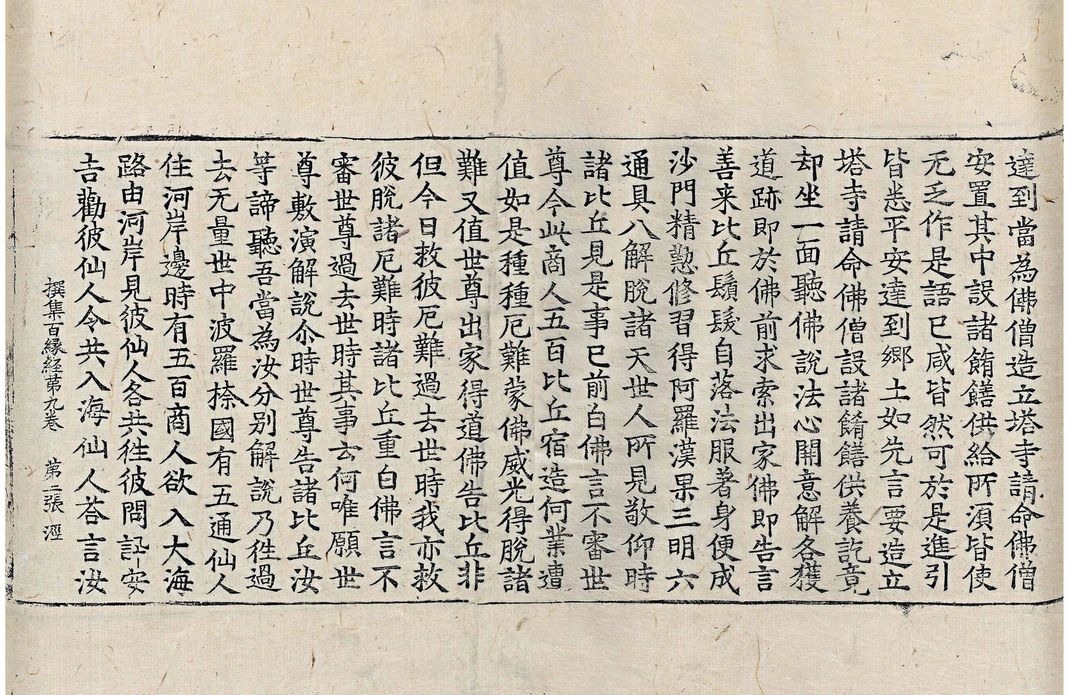 達到當為佛僧造立塔寺請命佛僧
安置其中設諸餚饍供給所湏皆使
无乏作是語已咸皆然可於是進引
皆悉平安達到郷土如先言要造立
塔寺請命佛僧設諸餚饍供養訖竟
却坐一面聽佛說法心開意解各獲
道跡即於佛前求索出家佛即告言
善来比丘鬚髮自落法服著身便成
沙門精懃修習得阿羅漢果三明六
通具八解脫諸天世人所見敬仰時
諸比丘見是事已前白佛言不審世
尊今此商人五百比丘宿造何業遭
值如是種種厄難蒙佛威光得脫諸
難又值世尊出家得道佛告比丘非
但今日救彼厄難過去世時我亦救
彼脫諸厄難時諸比丘重白佛言不
審世尊過去世時其事云何唯願世
尊敷演解說尒時世尊告諸比丘汝
等諦聽吾當為汝分別解說乃徃過
去无量世中波羅㮈國有五通仙人
住河岸邊時有五百商人欲入大海
路由河岸見彼仙人各共徃彼問訊安
吉勸彼仙人令共入海仙人荅言汝
撰集百縁経第九巻 第二張 涇